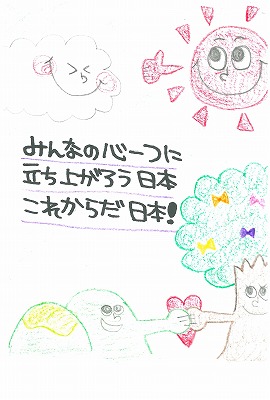 みんなの心一つに
立ち上がろう日本
これからだ日本!